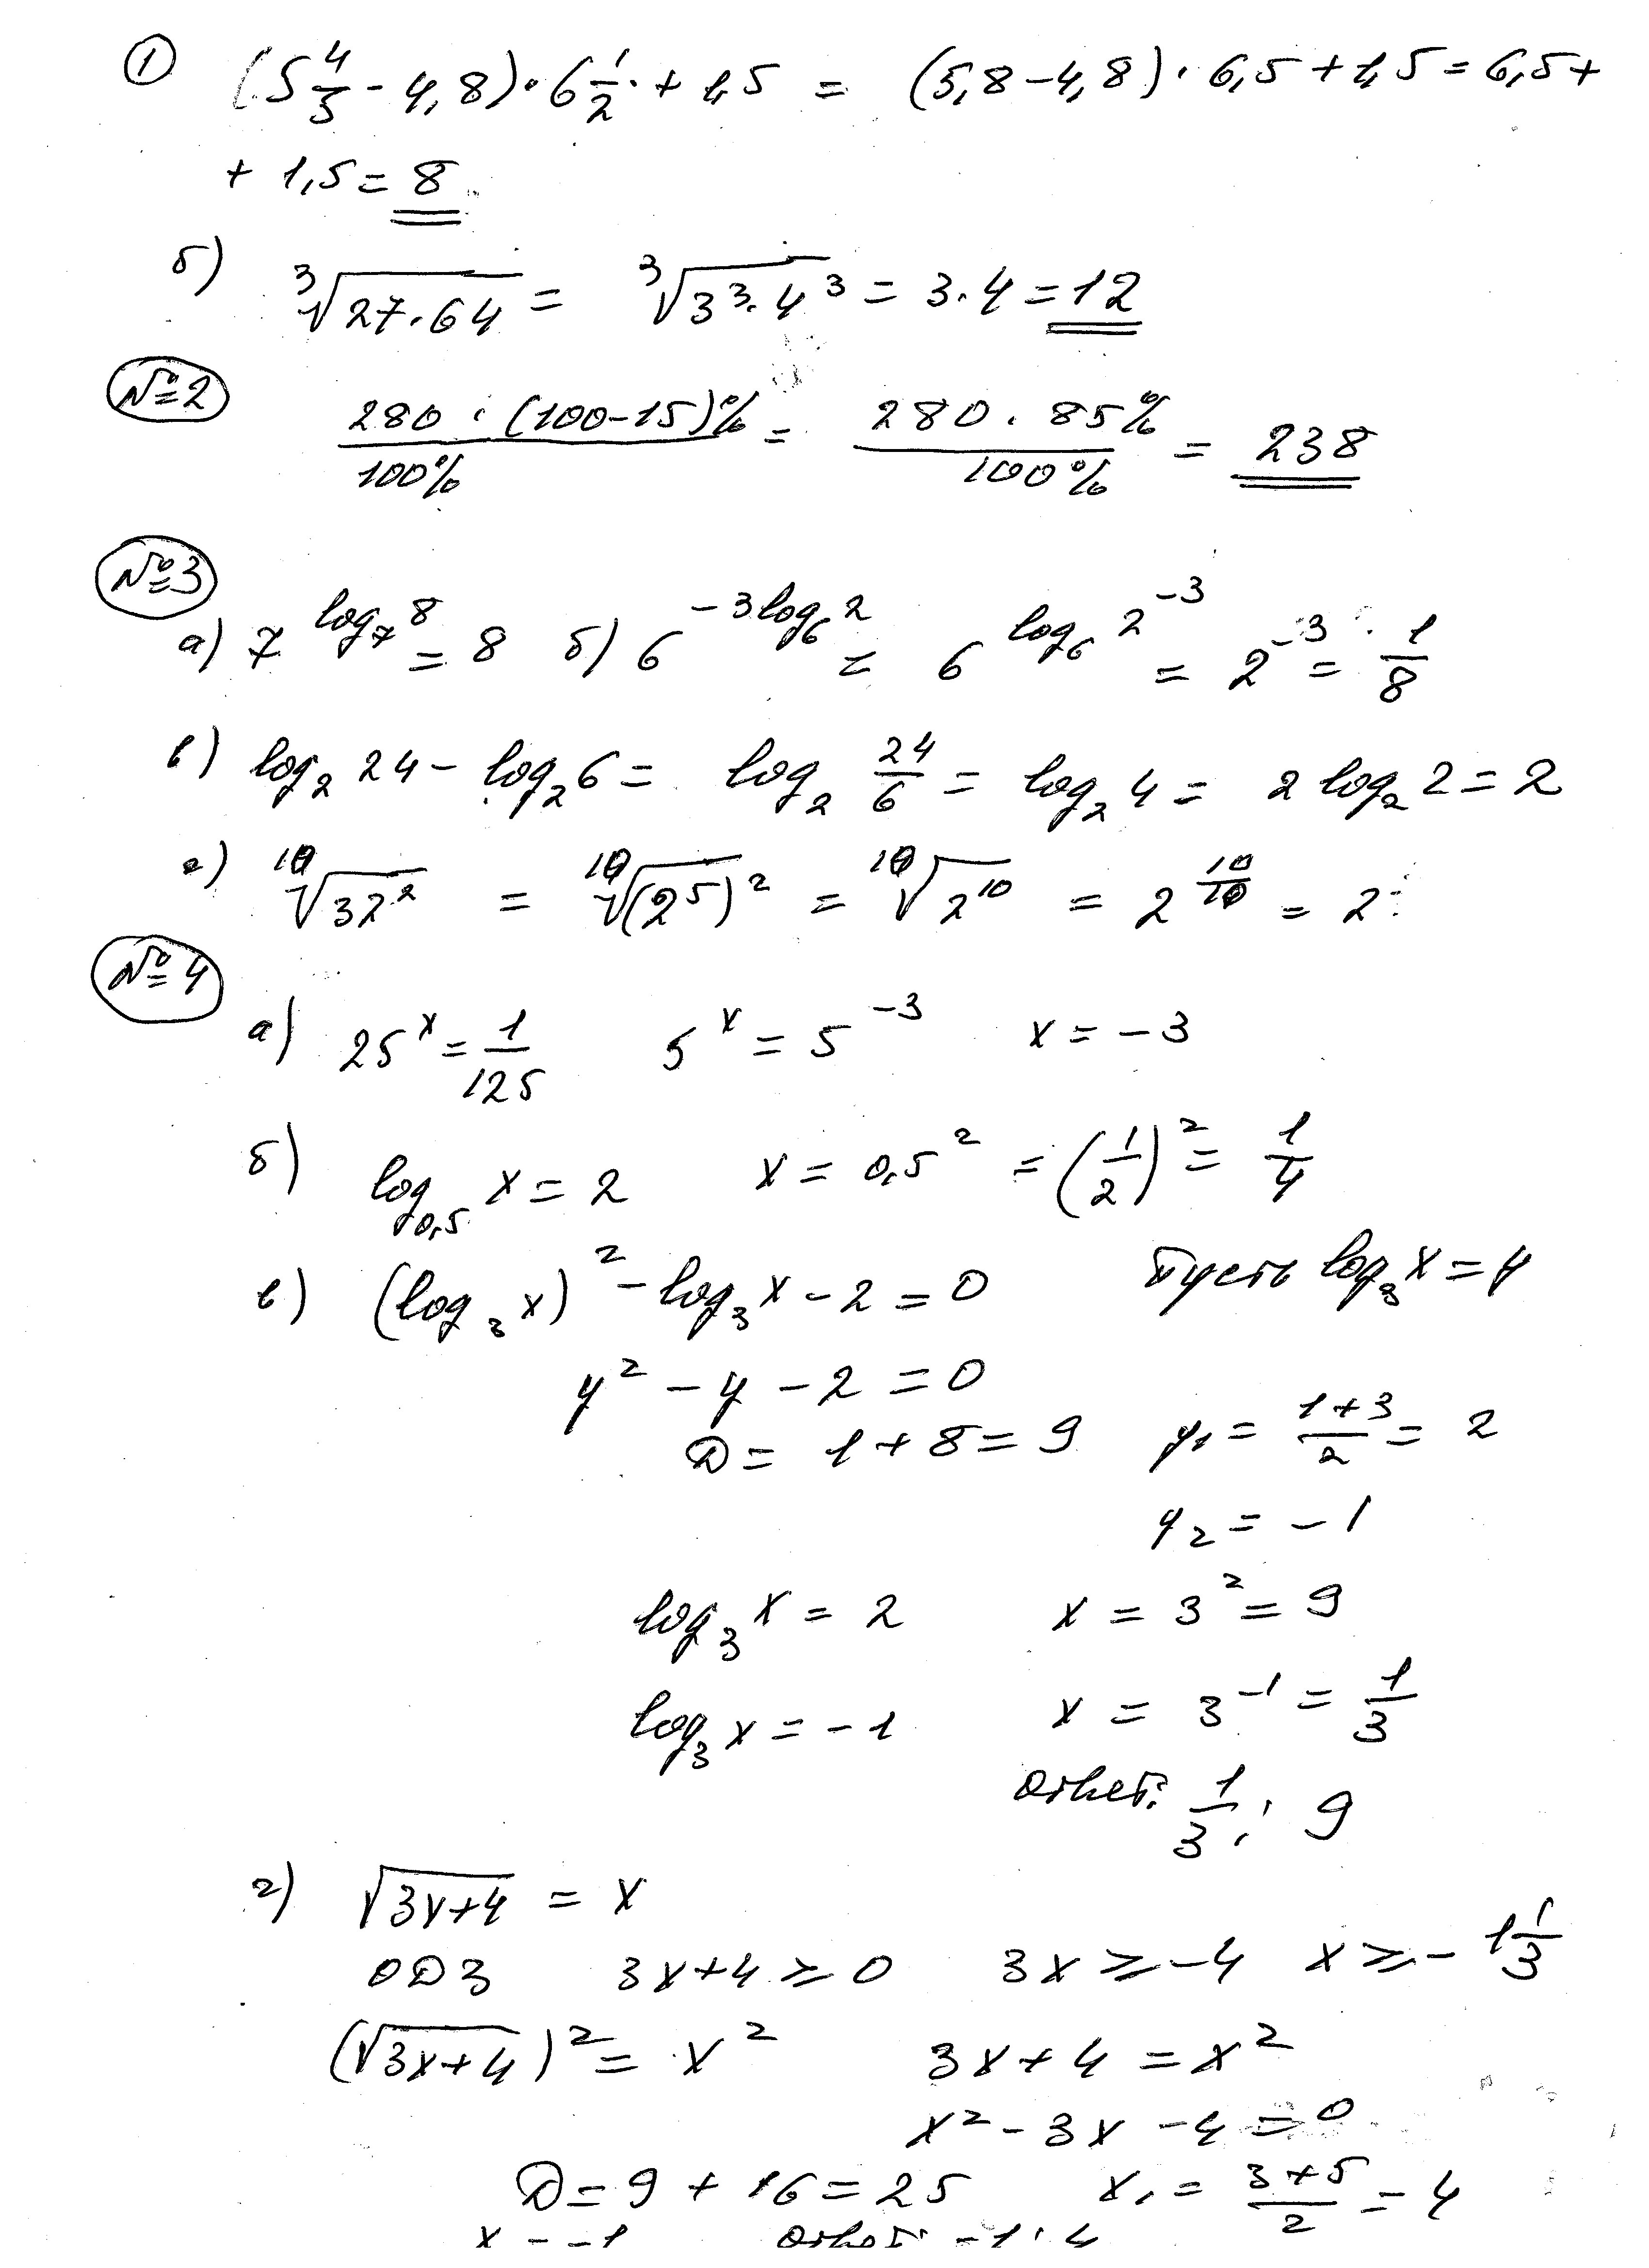 ① (5 4/5 - 4,8) · 6 1/2 · + 1,5 = (5,8 - 4,8) · 6,5 + 1,5 = 6,5 +
+ 1,5 = 8
б) ∛(27·64) = ∛(3³·4³) = 3·4 = 12
№2 280 · (100-15)% / 100% = 280 · 85% / 100% = 238
№3
а) 7^(log₇ 8) = 8 б) 6^(-3log₆ 2) = 6^(log₆ 2⁻³) = 2⁻³ = 1/8
в) log₂ 24 - log₂ 6 = log₂ 24/6 = log₂ 4 = 2 log₂ 2 = 2
г) ¹⁰√(32²) = ¹⁰√((2⁵)²) = ¹⁰√(2¹⁰) = 2^(10/10) = 2
№4
а) 25^x = 1/125 5^x = 5⁻³ x = -3
б) log₀,₅ x = 2 x = 0,5² = (1/2)² = 1/4
в) (log₃ x)² - log₃ x - 2 = 0 Пусть log₃ x = y
y² - y - 2 = 0
D = 1 + 8 = 9 y₁ = (1+3)/2 = 2
y₂ = -1
log₃ x = 2 x = 3² = 9
log₃ x = -1 x = 3⁻¹ = 1/3
Ответ: 1/3; 9
г) √(3x+4) = x
ОДЗ 3x+4 ≥ 0 3x ≥ -4 x ≥ -1 1/3
(√(3x+4))² = x² 3x + 4 = x²
x² - 3x - 4 = 0
D = 9 + 16 = 25 x₁ = (3+5)/2 = 4
x = -1 Ответ: -1; 4